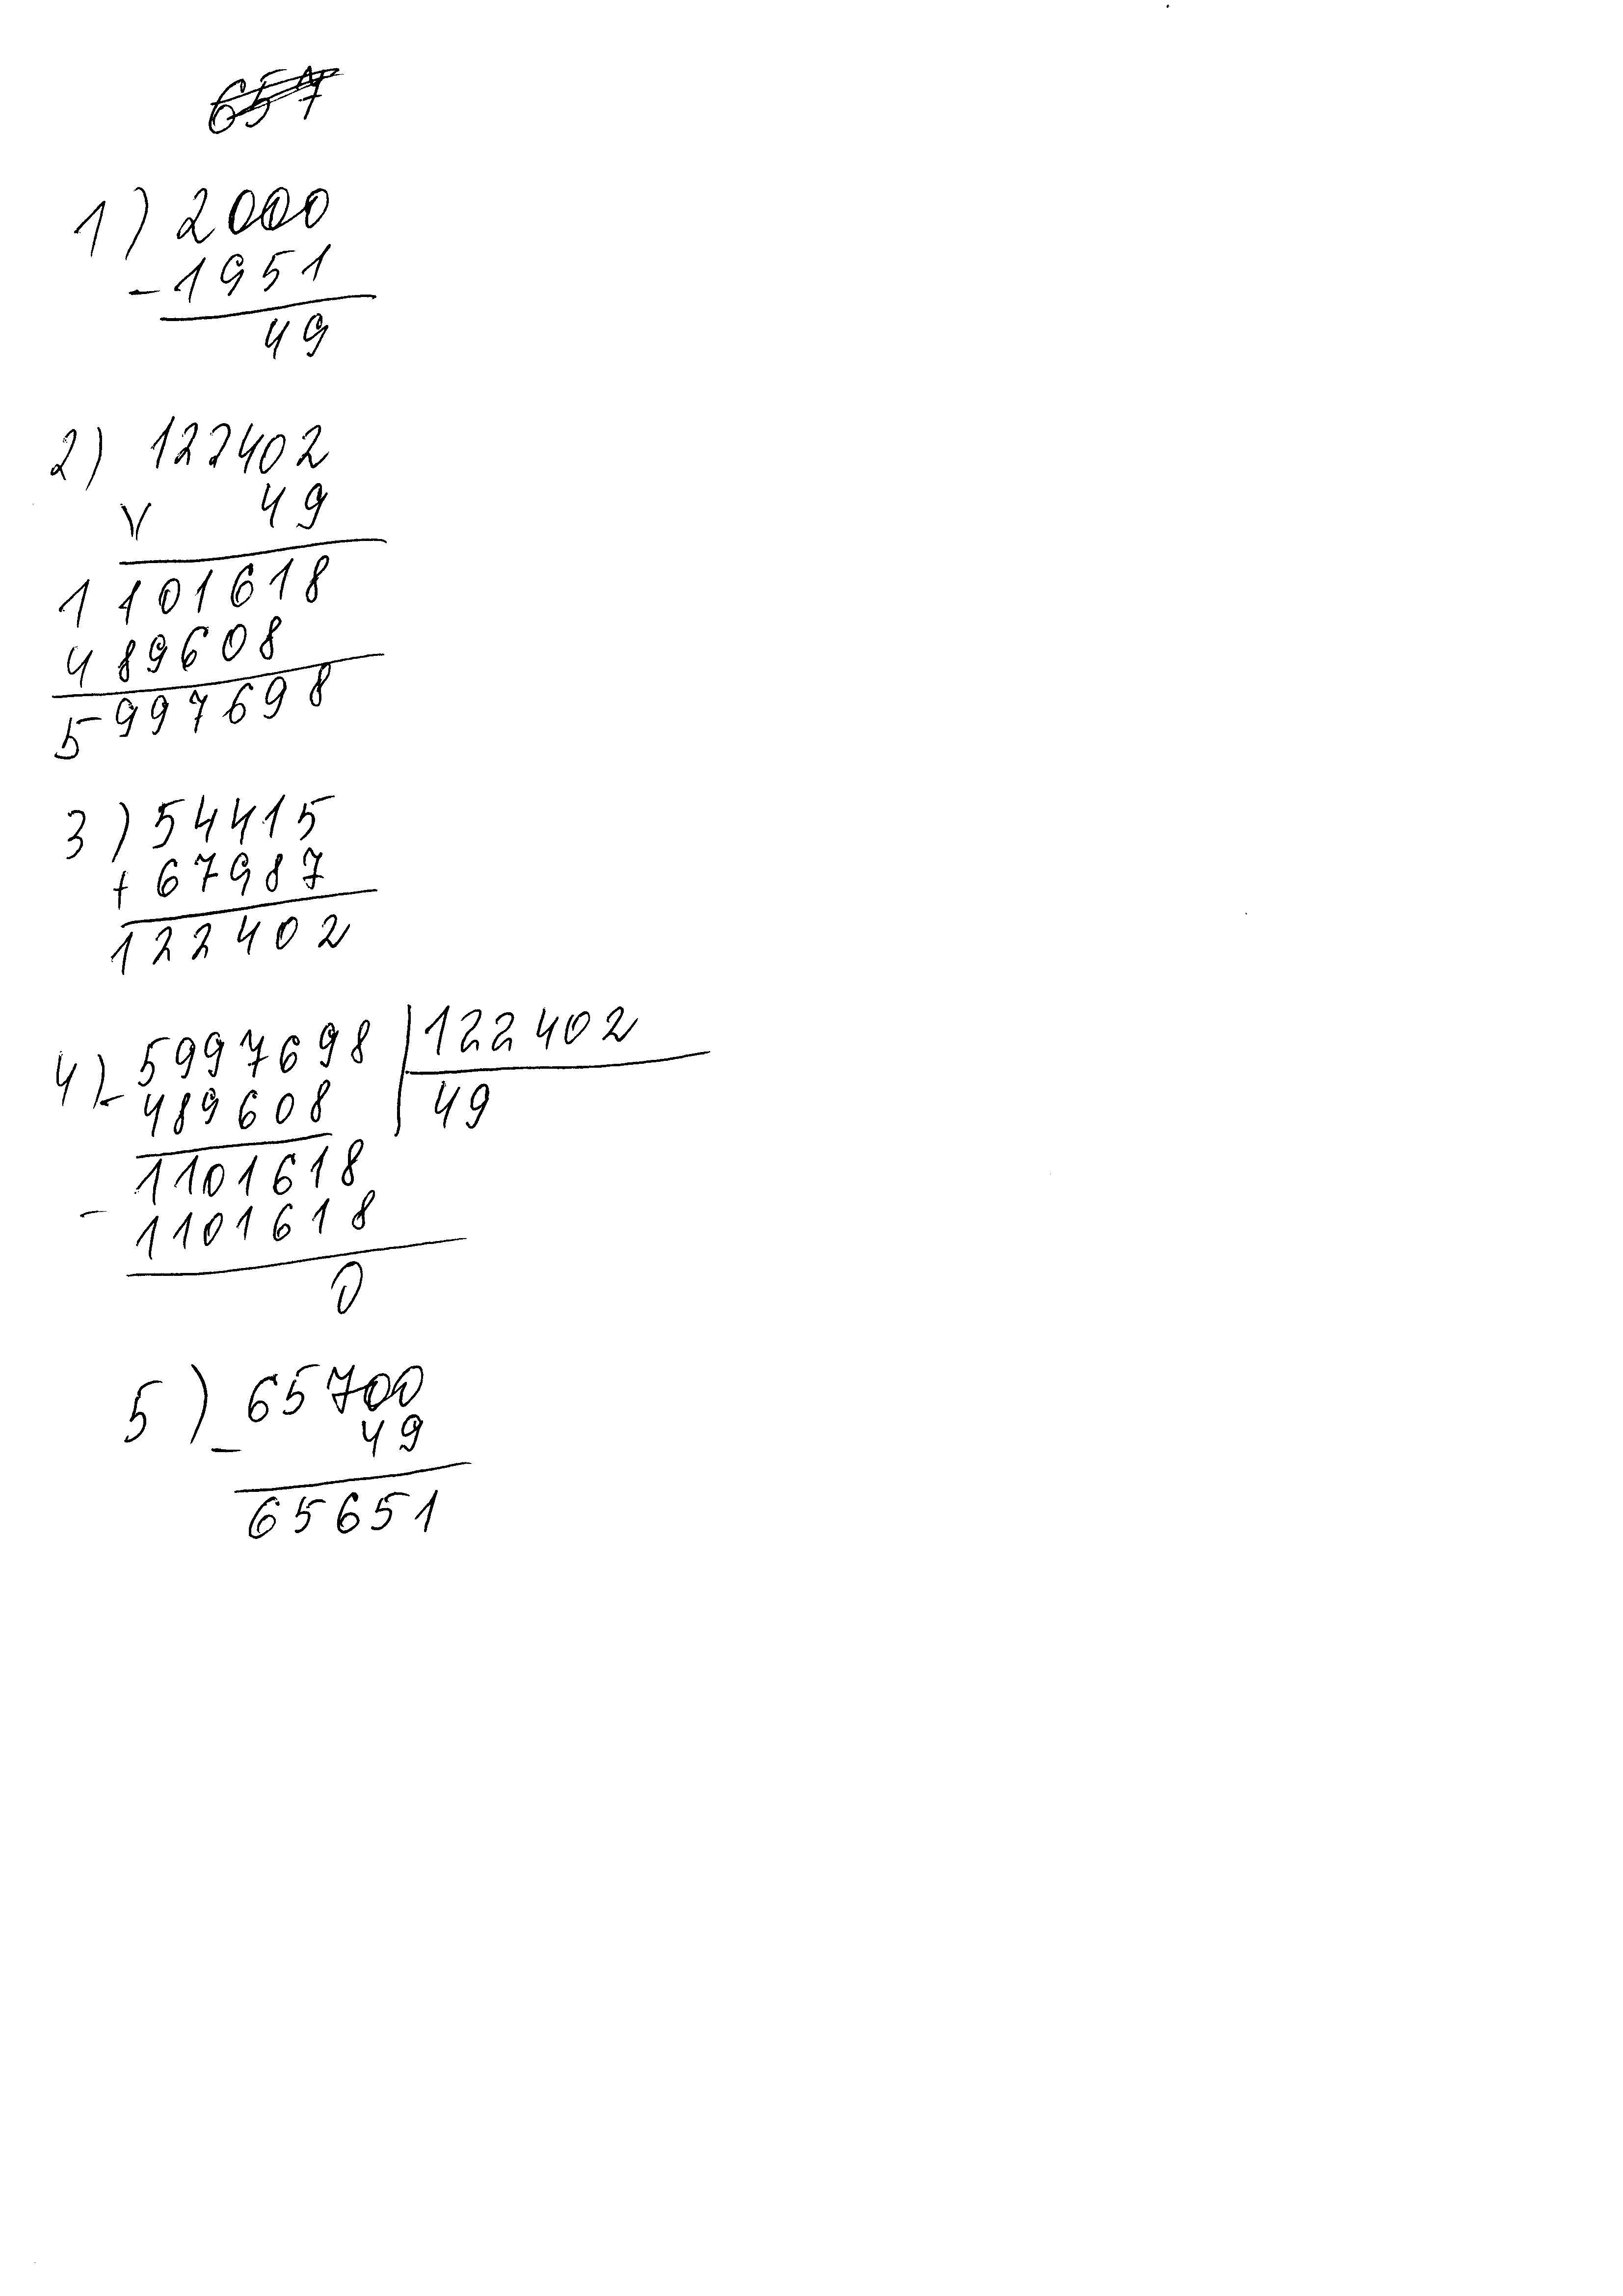 657
1) 2000
- 1951
49
2) 122402
× 49
1101618
489608
5997698
3) 54415
+ 67987
122402
4) - 5997698 | 122402
489608 | 49
1101618
- 1101618
0
5) 65700
- 49
65651